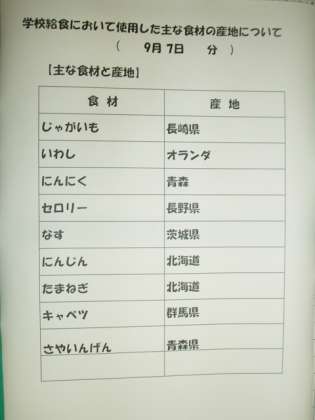 学校給食において使用した主な食材の産地について
（　9月 7日　分　）
【主な食材と産地】
食 材　産 地
じゃがいも　長崎県
いわし　オランダ
にんにく　青森
セロリー　長野県
なす　茨城県
にんじん　北海道
たまねぎ　北海道
キャベツ　群馬県
さやいんげん　青森県